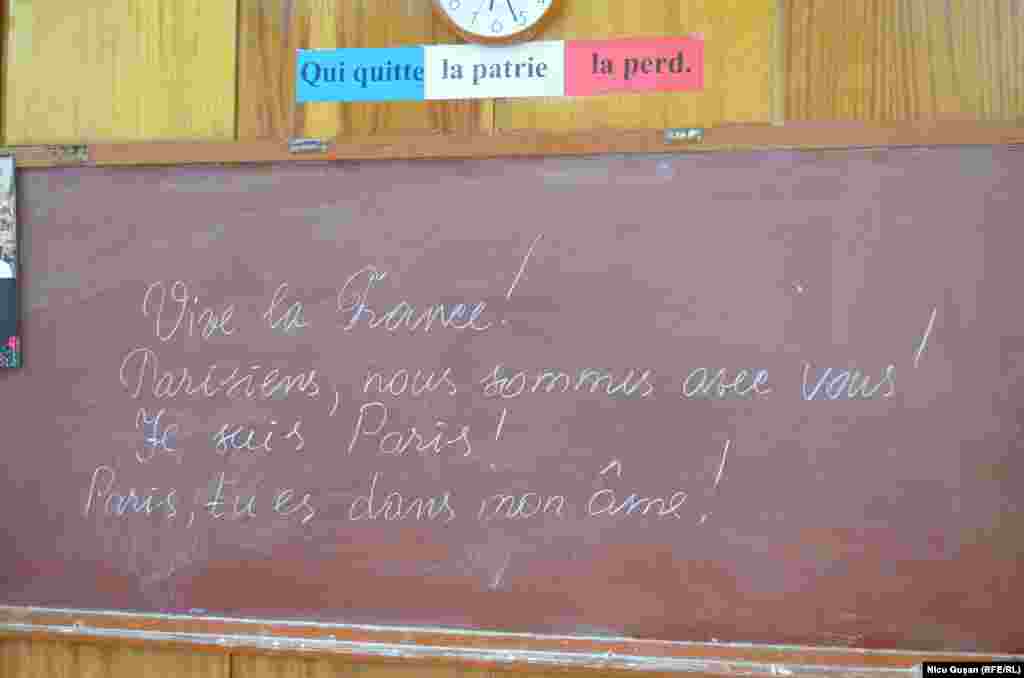 8 7 6 5 4
Qui quitte la patrie la perd.
Vive la France!
Parisiens, nous sommes avec vous!
Je suis Paris!
Paris, tu es dans mon âme!
Nicu Gușan (RFE/RL)